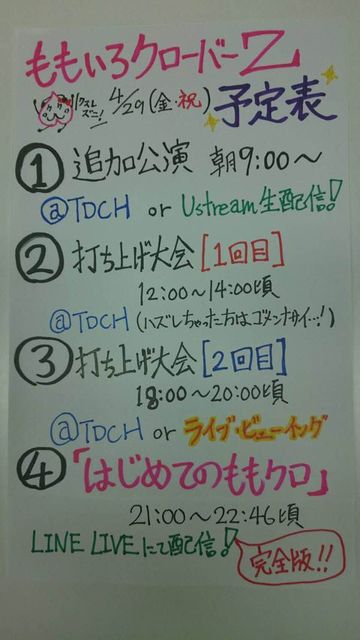 ももいろクローバーZ
4/29(金・祝)
予定表
① 追加公演 朝9:00〜
@TDCH or Ustream生配信!
② 打ち上げ大会[1回目]
12:00〜14:00頃
@TDCH(ハズしちゃった方はゴメンナサイ…!)
③ 打ち上げ大会[2回目]
18:00〜20:00頃
@TDCH or ライブ・ビューイング
④「はじめてのももクロ」
21:00〜22:46頃
LINE LIVEにて配信!
完全版!!